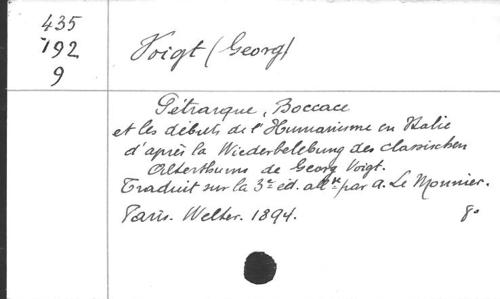 435
792
9
Voigt (Georg)
Pétrarque, Boccace
et les débuts de l'Humanisme en Italie
d'après la Wiederbelebung des classischen
Alterthums de Georg Voigt.
Traduit sur la 3e éd. alle par A. Le Monnier.
Paris. Welter. 1894. 8o